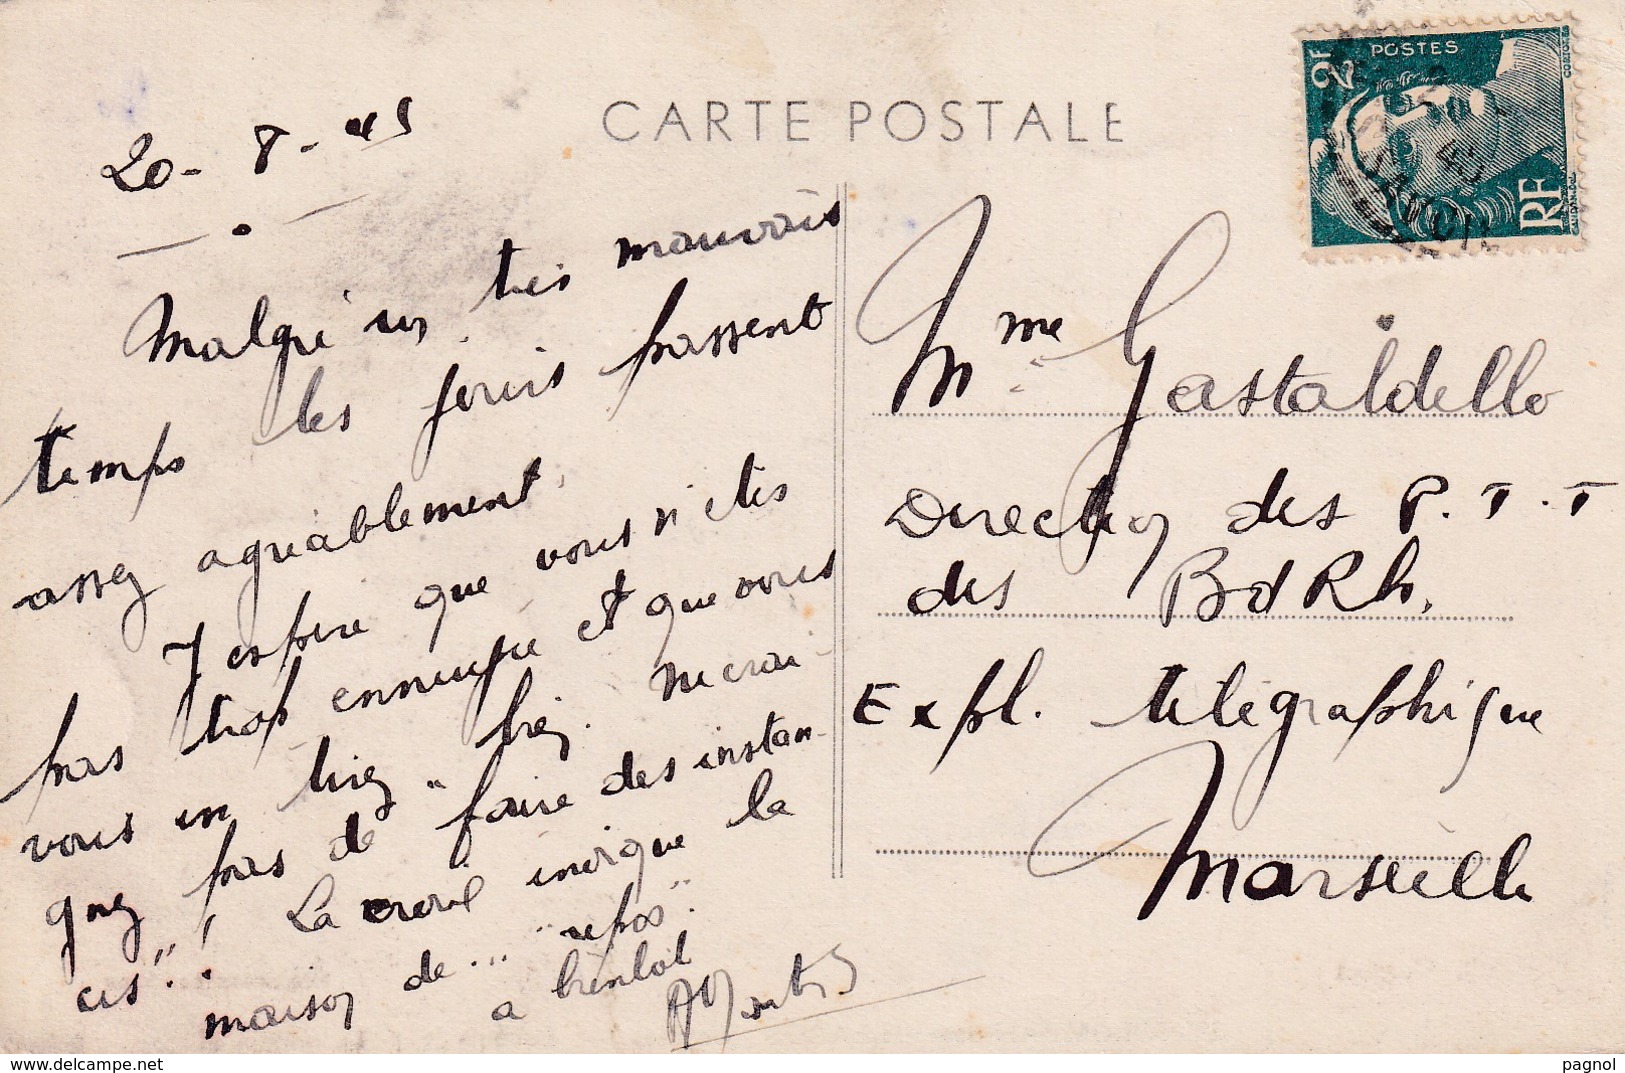 CARTE POSTALE
POSTES
2F
RF
20-8-45
Malgré un très mauvais
temps les jours passent
assez agréablement.
J'espère que vous n'êtes
pas trop ennuyée et que vous
vous en tirez. " 
quez pas de faire des instan-
ces" ! La croix indique la
maison de... "repos".
a bientôt
Mme Gastaldello
Direction des P.T.T
des BdRh.
Expl. télégraphique
Marseille
delcampe.net
pagnol